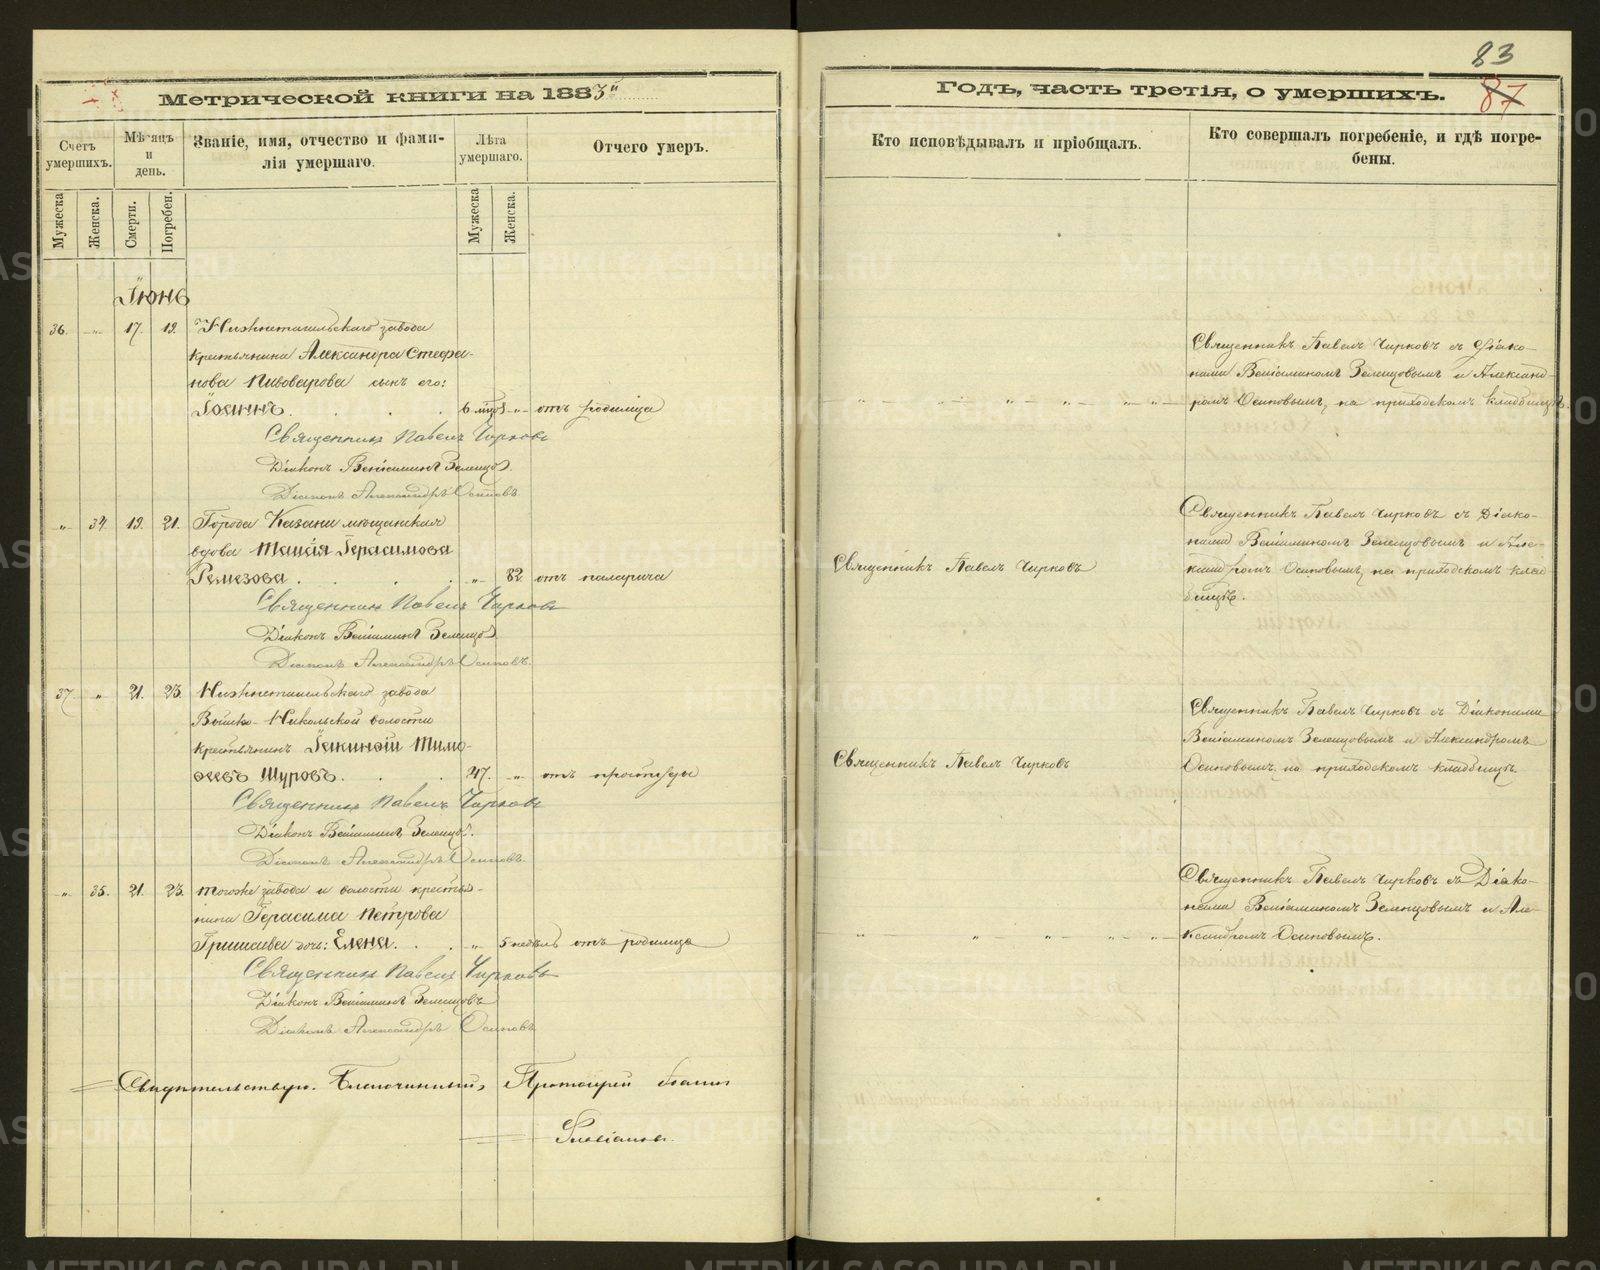 Метрической книги на 1883й
Счетъ умершихъ.
Мѣсяцъ и день.
Званіе, имя, отчество и фами-
лія умершаго.
Лѣта умершаго.
Отчего умеръ.
Мужеска
Женска.
Смерти.
Погребен.
Мужеска
Женска.
Іюнь
36. " 17. 19. Нижнетагильскаго завода
крестьянина Александра Стефа-
нова Пивоварова сынъ его:
Іоаннъ. 6 мцов " отъ родимца
Священникъ Павелъ Чирковъ
Діаконъ Веніаминъ Зеленцовъ.
Діаконъ Александръ Осиповъ.
" 34. 19. 21. Города Казани мѣщанская
вдова Таисія Герасимова
Ремезова. " 82. отъ паралича
Священникъ Павелъ Чирковъ
Діаконъ Веніаминъ Зеленцовъ.
Діаконъ Александръ Осиповъ.
37. " 21. 23. Нижнетагильскаго завода
Выйско-Никольской волости
крестьянинъ Іакинѳій Тимо-
ѳеевъ Шуровъ. 47. " отъ простуды
Священникъ Павелъ Чирковъ
Діаконъ Веніаминъ Зеленцовъ.
Діаконъ Александръ Осиповъ.
" 35. 21. 23. тогоже завода и волости крестья-
нина Герасима Петрова
дочь: Елена. " 5 недѣль отъ родимца
Священникъ Павелъ Чирковъ
Діаконъ Веніаминъ Зеленцовъ
Діаконъ Александръ Осиповъ
Свидѣтельствую. Благочинный, Протоіерей Іоаннъ
83
87
Годъ, часть третія, о умершихъ.
Кто исповѣдывалъ и пріобщалъ.
Кто совершалъ погребеніе, и гдѣ погре-
бены.
Священникъ Павелъ Чирковъ съ Діако-
нами Веніаминомъ Зеленцовымъ и Александ-
ромъ Осиповымъ, на приходскомъ кладбищѣ.
Священникъ Павелъ Чирковъ
Священникъ Павелъ Чирковъ съ Діако-
нами Веніаминомъ Зеленцовымъ и Але-
ксандромъ Осиповымъ, на приходскомъ клад-
бищѣ.
Священникъ Павелъ Чирковъ
Священникъ Павелъ Чирковъ съ Діаконами
Веніаминомъ Зеленцовымъ и Александромъ
Осиповымъ на приходскомъ кладбищѣ.
Священникъ Павелъ Чирковъ съ Діако-
нами Веніаминомъ Зеленцовымъ и Але-
ксандромъ Осиповымъ.
METRIKI.GASO-URAL.RU